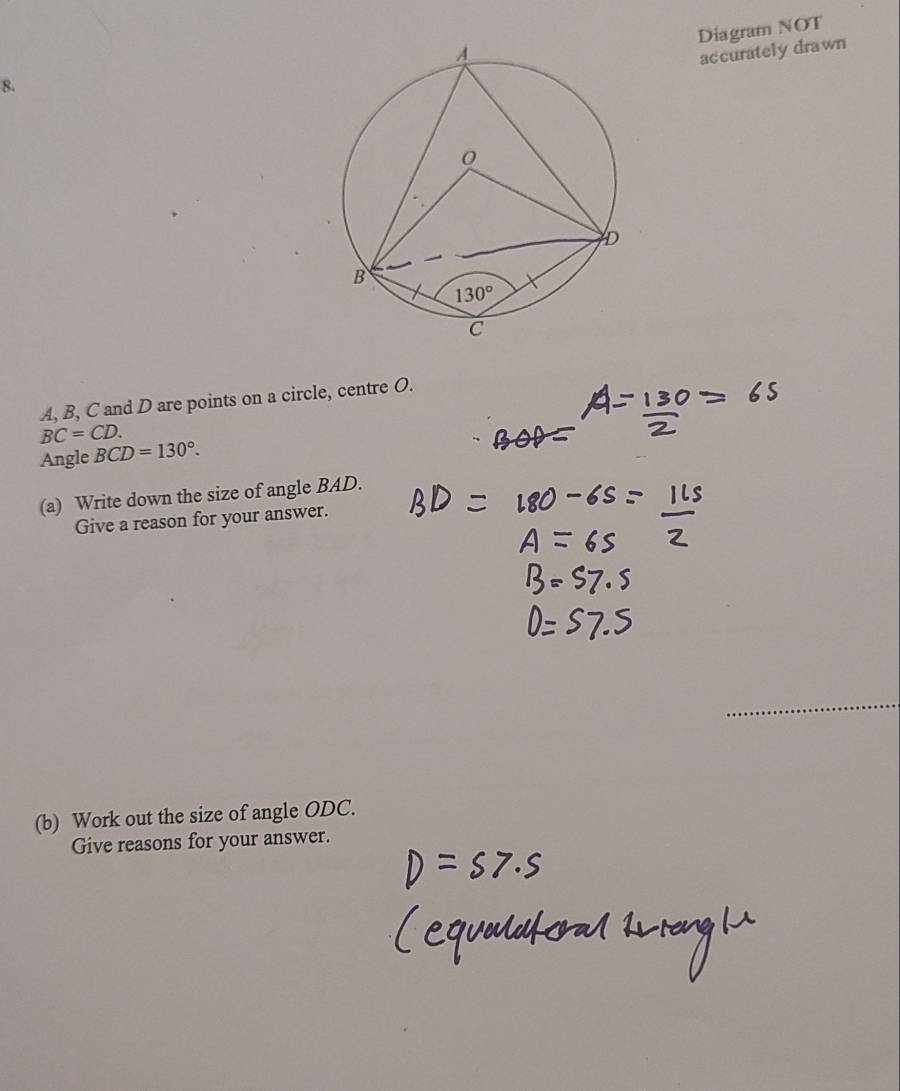 Diagram NOT
accurately drawn
8.
A
O
D
B
130°
C
A, B, C and D are points on a circle, centre O.
BC = CD.
Angle BCD = 130°.
A = 130/2 = 65
BOD =
(a) Write down the size of angle BAD.
Give a reason for your answer.
BD = 180 - 65 = 115/2
A = 65
B = 57.5
D = 57.5
(b) Work out the size of angle ODC.
Give reasons for your answer.
D = 57.5
(equalateral triangle